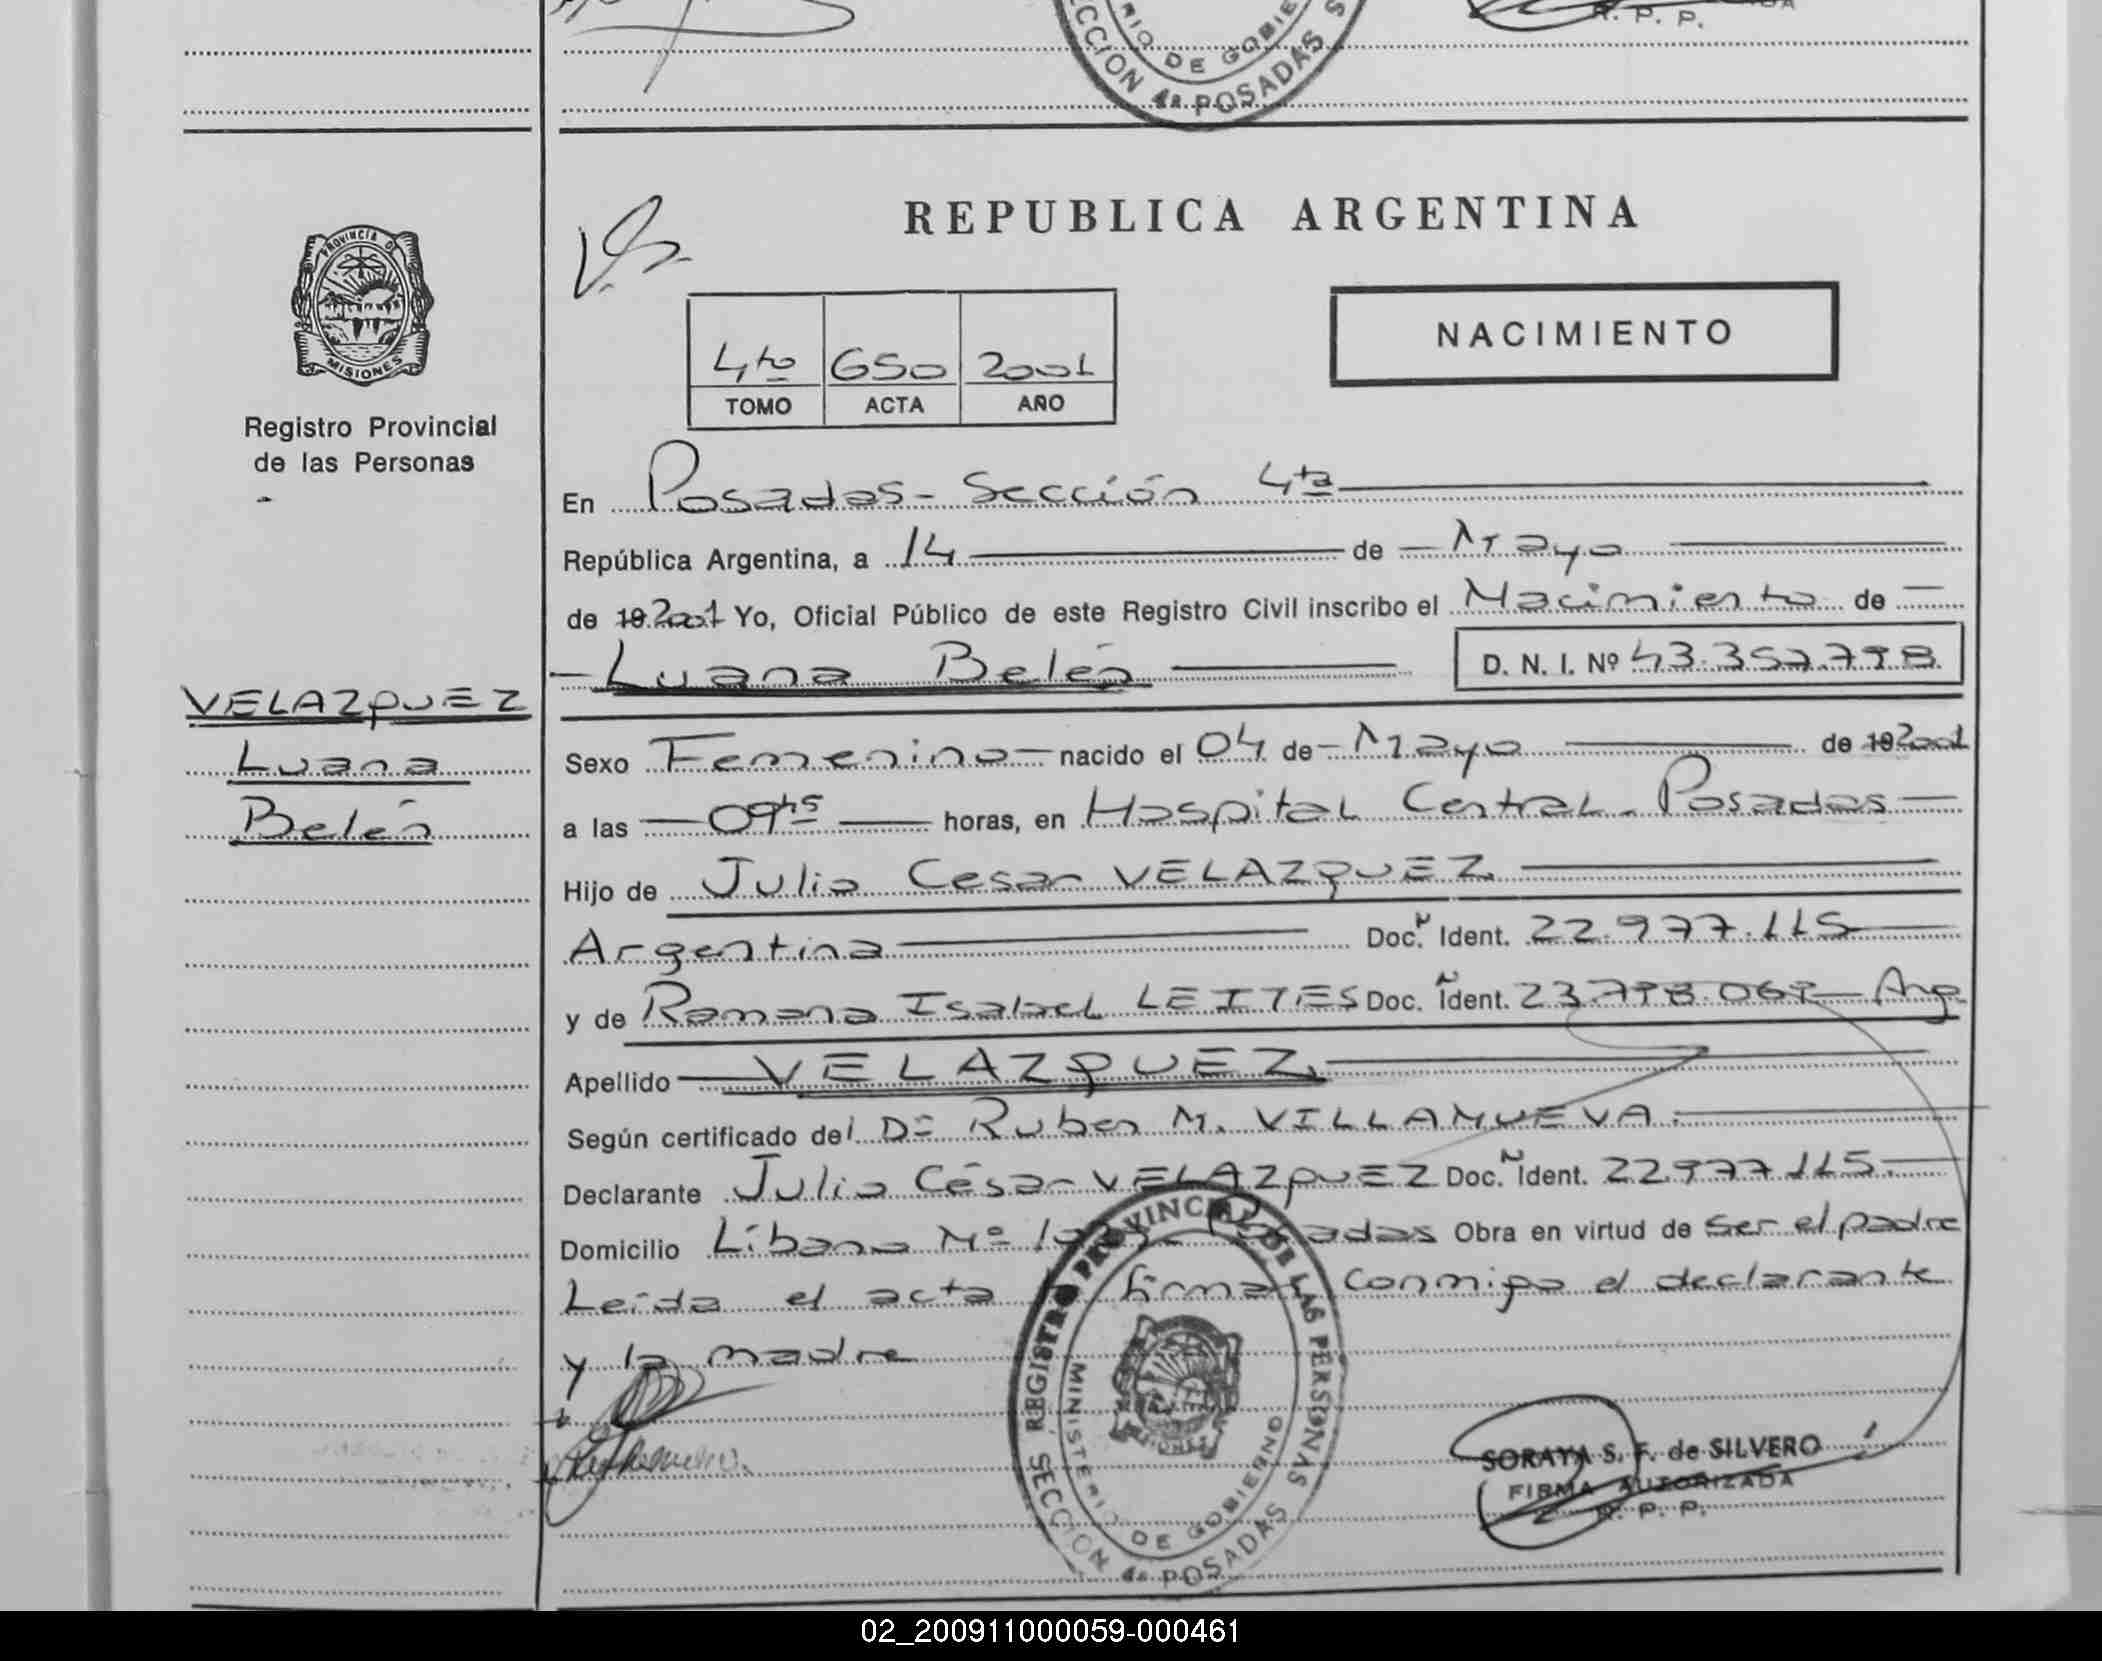 R. P. P.
MINISTERIO DE GOBIERNO
SECCION 4ª POSADAS
PROVINCIA DE
MISIONES
Registro Provincial
de las Personas
VELAZQUEZ
Luana
Belén
REPUBLICA ARGENTINA
NACIMIENTO
4to 650 2001
TOMO ACTA AÑO
En Posadas - Sección 4ta
República Argentina, a 14 de Mayo
de 19 2001 Yo, Oficial Público de este Registro Civil inscribo el Nacimiento de
Luana Belén D. N. I. Nº 43.357.798
Sexo Femenino nacido el 04 de Mayo de 19 2001
a las 09 45 horas, en Hospital Central - Posadas
Hijo de Julio Cesar VELAZQUEZ
Argentina Doc. Ident. 22.977.115
y de Ramona Isabel LEITES Doc. Ident. 23.798.069 - Arg
Apellido VELAZQUEZ
Según certificado del Dr Ruben M. VILLANUEVA.
Declarante Julio César VELAZQUEZ Doc. Ident. 22.977.115.
Domicilio Líbano Nº Posadas Obra en virtud de ser el padre
Leída el acta firman conmigo el declarante
y la madre
REGISTRO PROVINCIAL DE LAS PERSONAS
MINISTERIO DE GOBIERNO
MISIONES
SECCION 4ª POSADAS
SORAYA S. F. de SILVERO
FIRMA AUTORIZADA
R. P. P.
02_200911000059-000461